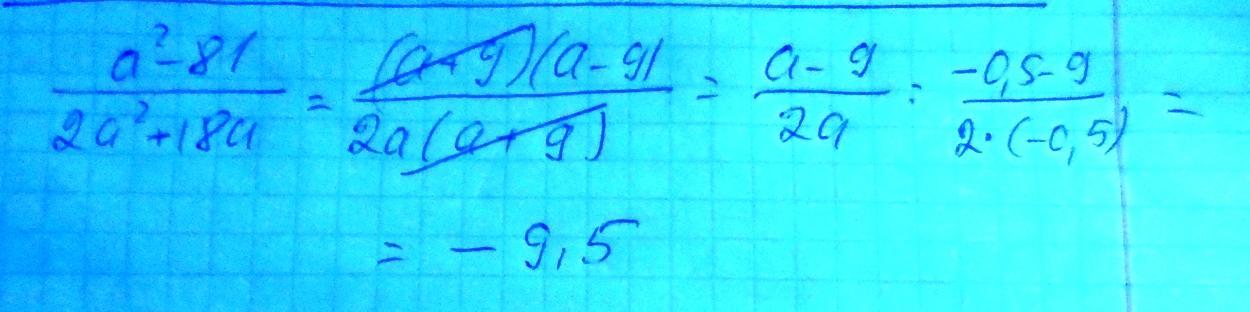 (a² - 81)/(2a² + 18a) = ((a + 9)(a - 9))/(2a(a + 9)) = (a - 9)/(2a) = (-0,5 - 9)/(2·(-0,5)) =
= - 9,5